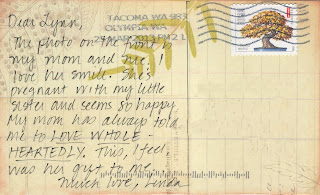 Dear Lynn,
The photo on the front is
my mom and me. I
love her smile. She's
pregnant with my little
sister and seems so happy.
My mom has always told
me to LOVE WHOLE-
HEARTEDLY. This, I feel,
was her gift to me.
Much love, Linda
TACOMA WA 983
OLYMPIA WA
PM 2 L